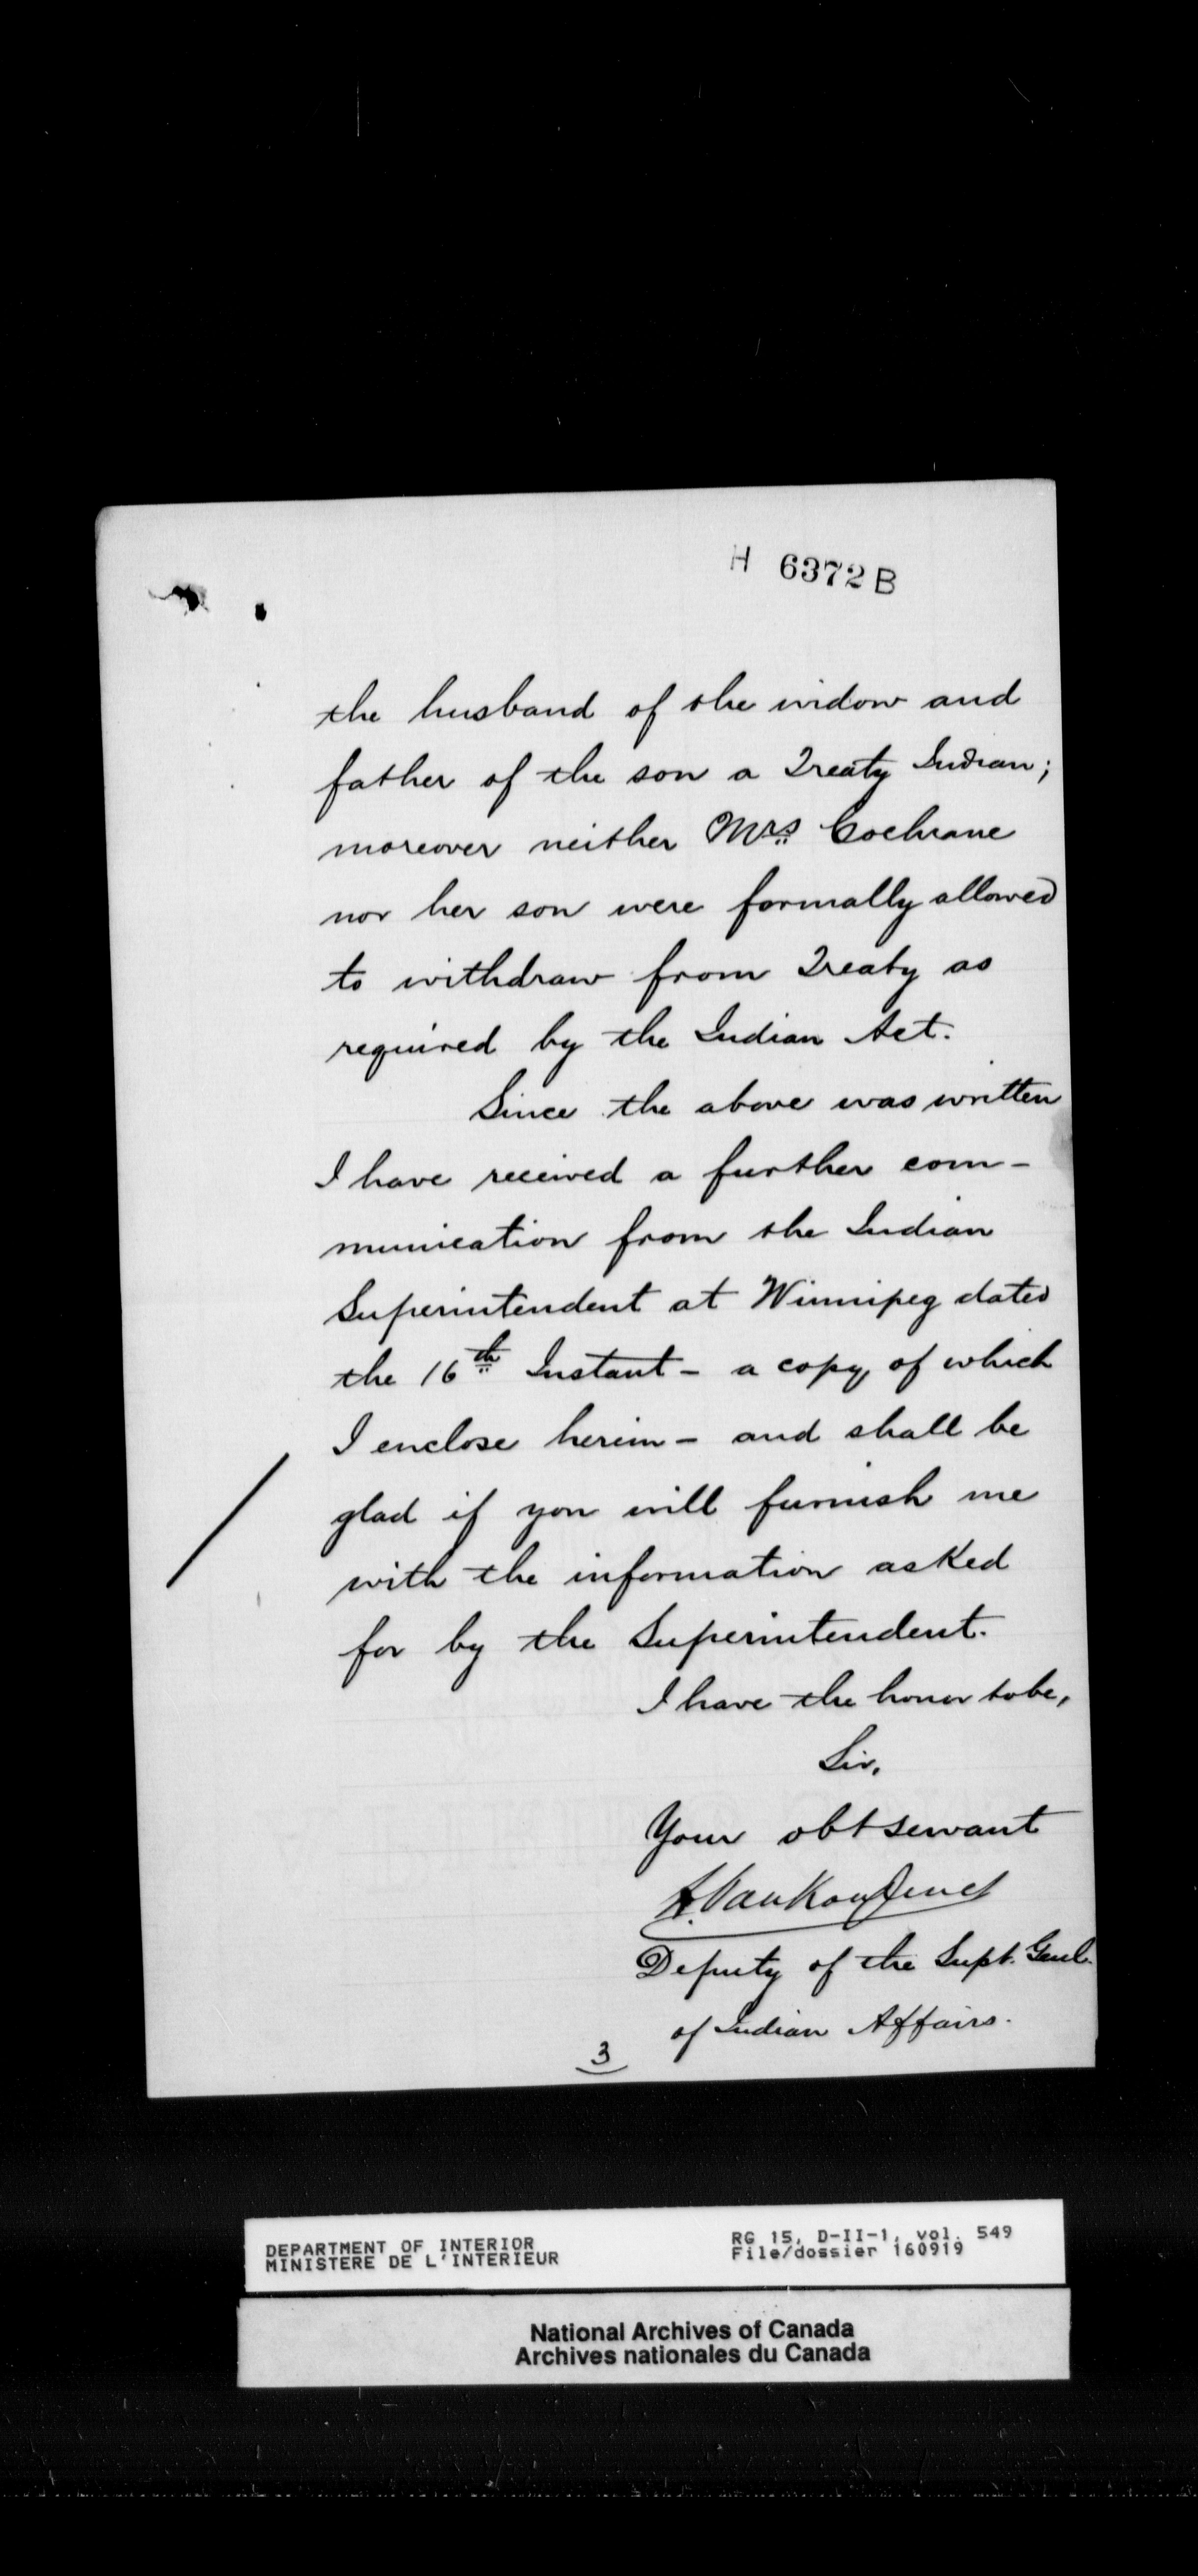 H 6372 B
the husband of the widow and
father of the son a Treaty Indian;
moreover neither Mrs Cochrane
nor her son were formally allowed
to withdraw from Treaty as
required by the Indian Act.
Since the above was written
I have received a further com-
munication from the Indian
Superintendent at Winnipeg dated
the 16th Instant - a copy of which
I enclose herein - and shall be
glad if you will furnish me
with the information asked
for by the Superintendent.
I have the honor to be,
Sir,
Your obt servant
L. VanKoughnet
Deputy of the Supt. Genl.
of Indian Affairs.
3
DEPARTMENT OF INTERIOR
MINISTERE DE L'INTERIEUR
RG 15, D-II-1, vol. 549
File/dossier 160919
National Archives of Canada
Archives nationales du Canada